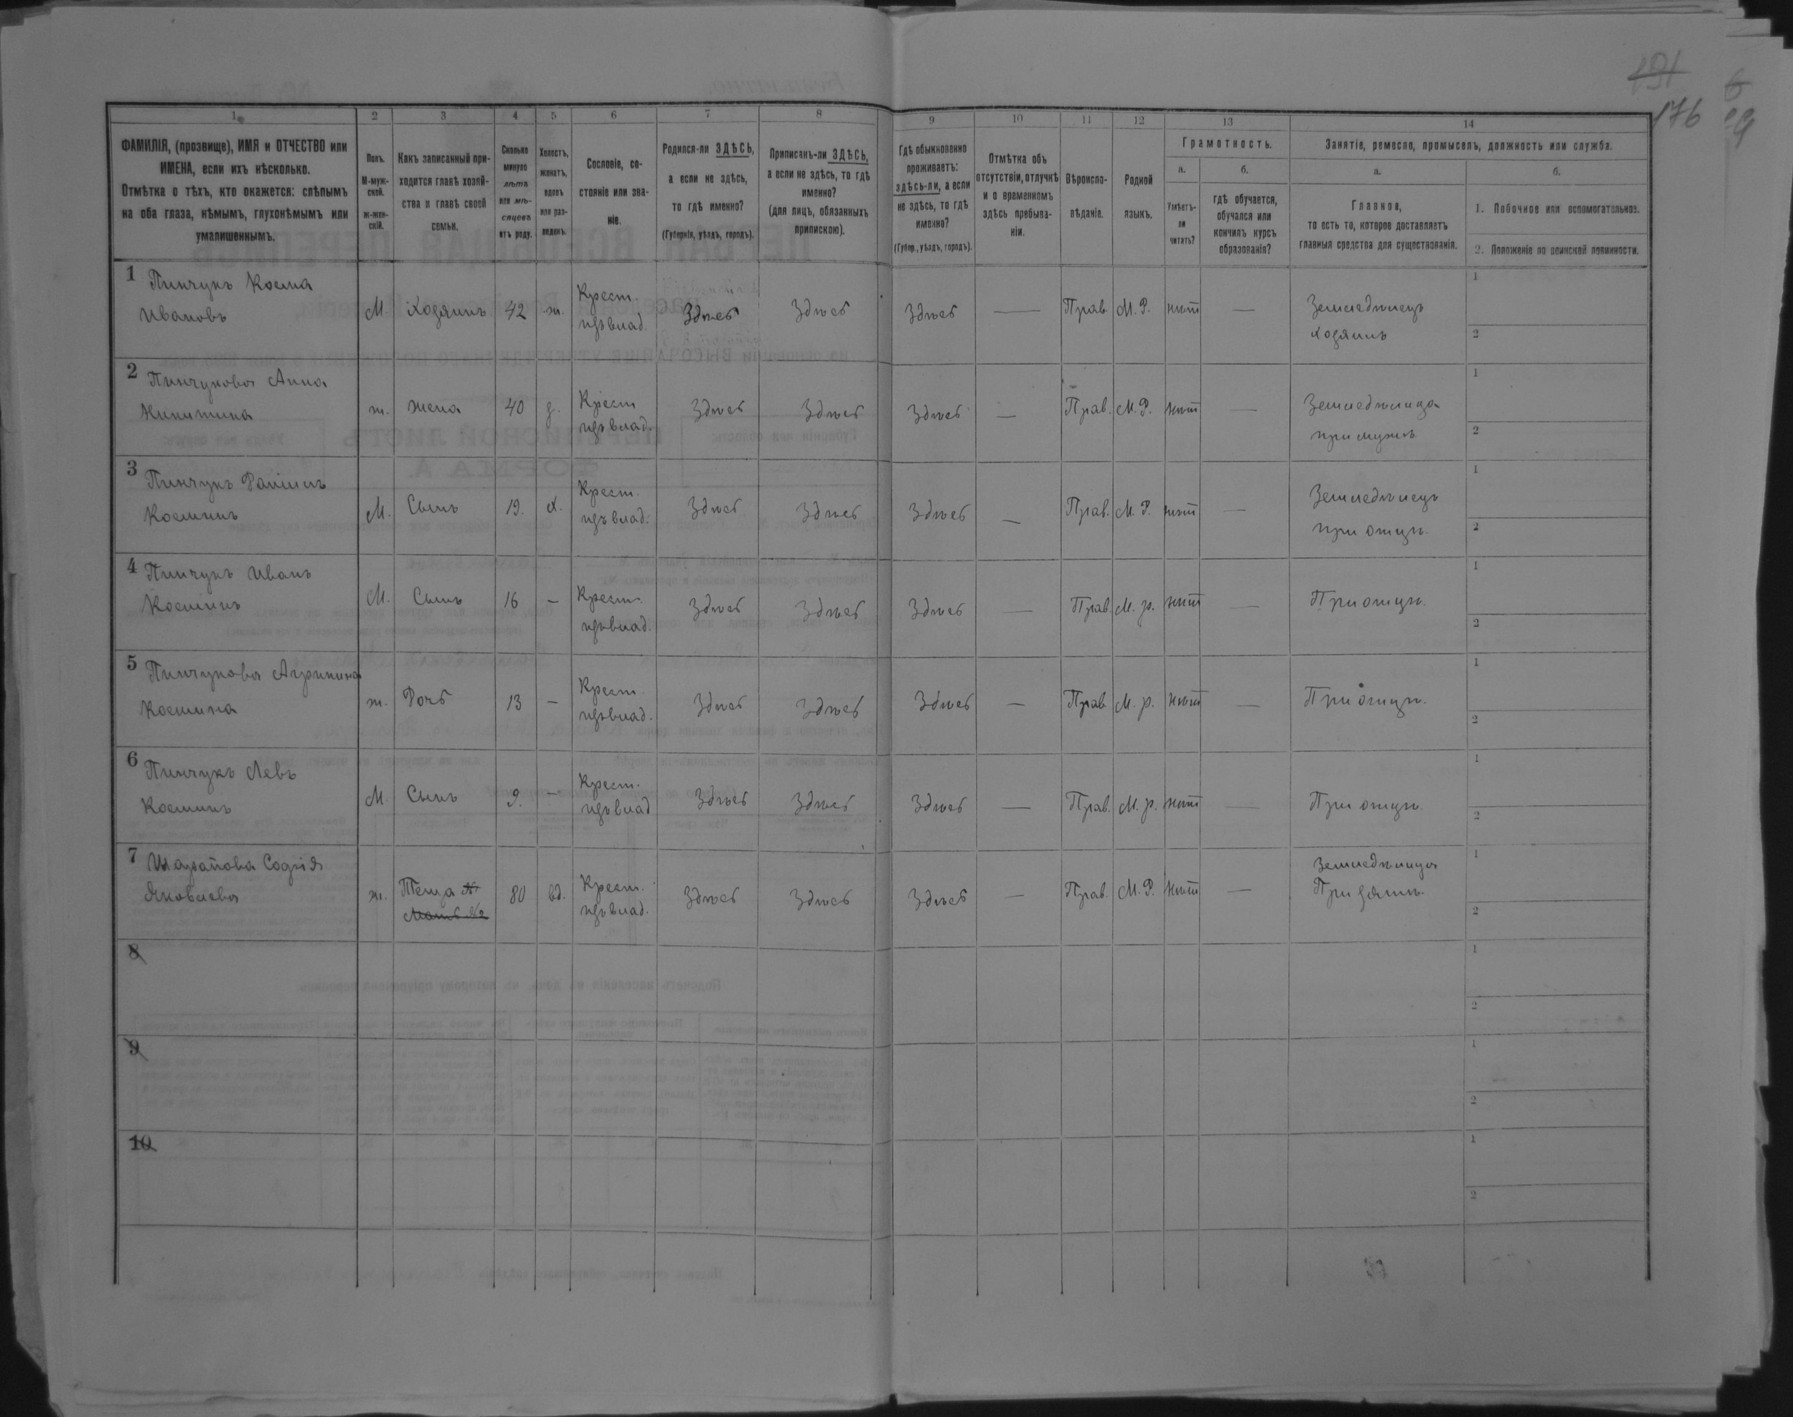 191
176
6
99
1
2
3
4
5
6
7
8
9
10
11
12
13
14
ФАМИЛІЯ, (прозвище), ИМЯ и ОТЧЕСТВО или
ИМЕНА, если ихъ нѣсколько.
Отмѣтка о тѣхъ, кто окажется: слѣпымъ
на оба глаза, нѣмымъ, глухонѣмымъ или
умалишеннымъ.
Полъ.
М-муж-
ской.
ж-жен-
скій.
Какъ записанный при-
ходится главѣ хозяй-
ства и главѣ своей
семьи.
Сколько
минуло
лѣтъ
или мѣ-
сяцевъ
отъ роду.
Холостъ,
женатъ,
вдовъ
или раз-
веденъ.
Сословіе, со-
стояніе или зва-
ніе.
Родился-ли ЗДѢСЬ,
а если не здѣсь,
то гдѣ именно?
(Губернія, уѣздъ, городъ).
Приписанъ-ли ЗДѢСЬ,
а если не здѣсь, то гдѣ
именно?
(для лицъ, обязанныхъ
припискою).
Гдѣ обыкновенно
проживаетъ:
здѣсь-ли, а если
не здѣсь, то гдѣ
именно?
(Губер., уѣздъ, городъ).
Отмѣтка объ
отсутствіи, отлучкѣ
и о временномъ
здѣсь пребыва-
ніи.
Вѣроиспо-
вѣданіе.
Родной
языкъ.
Грамотность.
а.
Умѣетъ-
ли
читать?
б.
гдѣ обучается,
обучался или
кончилъ курсъ
образованія?
Занятіе, ремесло, промыселъ, должность или служба.
а.
Главное,
то есть то, которое доставляетъ
главныя средства для существованія.
б.
1. Побочное или вспомогательное.
2. Положеніе по воинской повинности.
1 Пинчукъ Косма
Ивановъ
М. Хозяинъ 42 ж. Крест. Здѣсь Здѣсь Здѣсь — Прав. М. Р. нѣт — Земледѣлецъ
хозяинъ
1
2
2 Пинчукова Анна
Никитина
ж. жена 40 з. Крест. Здѣсь Здѣсь Здѣсь — Прав. М. Р. нѣт — Земледѣлица
при мужѣ
1
2
3 Пинчукъ
Косминъ
М. Сынъ 19. х. Крест. Здѣсь Здѣсь Здѣсь — Прав. М. Р. нѣт — Земледѣлецъ
при отцѣ.
1
2
4 Пинчукъ Иванъ
Косминъ
М. Сынъ 16 — Крест. Здѣсь Здѣсь Здѣсь — Прав. М. р. нѣт — При отцѣ.
1
2
5 Пинчукова Агрипина
Космина
ж. Дочь 13 — Крест. Здѣсь Здѣсь Здѣсь — Прав. М. р. нѣт — При отцѣ.
1
2
6 Пинчукъ Левъ
Косминъ
М. Сынъ 9. — Крест. Здѣсь Здѣсь Здѣсь — Прав. М. р. нѣт — При отцѣ.
1
2
7 Софія
Яковлева
ж. Теща 80 вд. Крест. Здѣсь Здѣсь Здѣсь — Прав. М. Р. нѣт — Земледѣлица
При зятѣ.
1
2
8
1
2
9
1
2
10
1
2